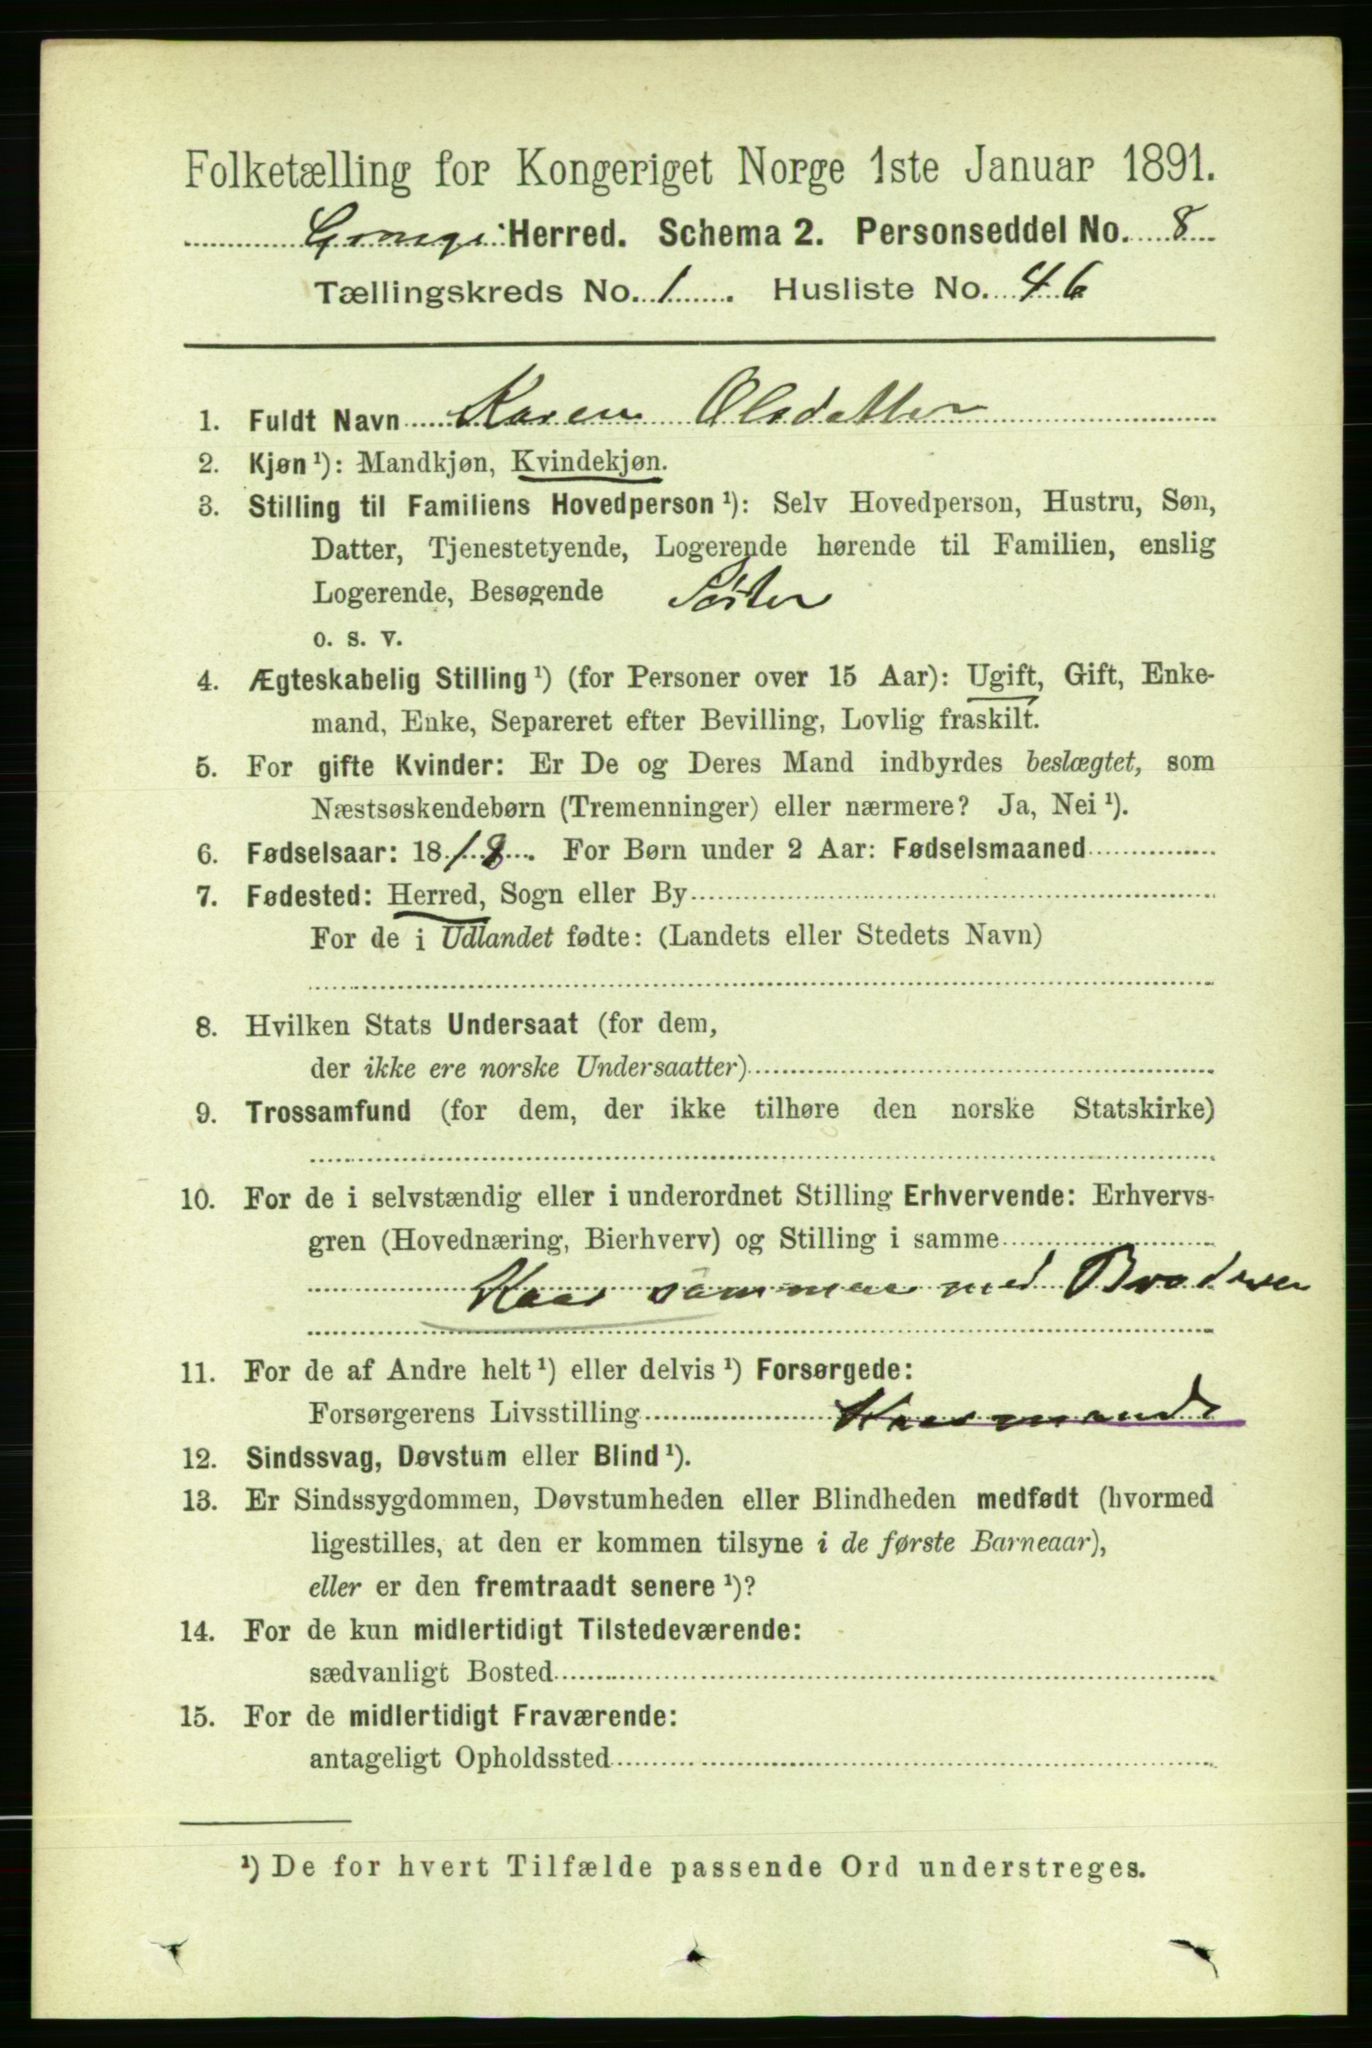 Folketælling for Kongeriget Norge 1ste Januar 1891.
Herred. Schema 2. Personseddel No. 8
Tællingskreds No. 1. Husliste No. 46
1. Fuldt Navn Karen Olsdatter
2. Kjøn¹): Mandkjøn, Kvindekjøn.
3. Stilling til Familiens Hovedperson¹): Selv Hovedperson, Hustru, Søn,
Datter, Tjenestetyende, Logerende hørende til Familien, enslig
Logerende, Besøgende Söster
o. s. v.
4. Ægteskabelig Stilling¹) (for Personer over 15 Aar): Ugift, Gift, Enke-
mand, Enke, Separeret efter Bevilling, Lovlig fraskilt.
5. For gifte Kvinder: Er De og Deres Mand indbyrdes beslægtet, som
Næstsøskendebørn (Tremenninger) eller nærmere? Ja, Nei¹).
6. Fødselsaar: 1818. For Børn under 2 Aar: Fødselsmaaned
7. Fødested: Herred, Sogn eller By
For de i Udlandet fødte: (Landets eller Stedets Navn)
8. Hvilken Stats Undersaat (for dem,
der ikke ere norske Undersaatter)
9. Trossamfund (for dem, der ikke tilhøre den norske Statskirke)
10. For de i selvstændig eller i underordnet Stilling Erhvervende: Erhvervs-
gren (Hovednæring, Bierhverv) og Stilling i samme
sammen med Broderen
11. For de af Andre helt¹) eller delvis¹) Forsørgede:
Forsørgerens Livsstilling
12. Sindssvag, Døvstum eller Blind¹).
13. Er Sindssygdommen, Døvstumheden eller Blindheden medfødt (hvormed
ligestilles, at den er kommen tilsyne i de første Barneaar),
eller er den fremtraadt senere¹)?
14. For de kun midlertidigt Tilstedeværende:
sædvanligt Bosted
15. For de midlertidigt Fraværende:
antageligt Opholdssted
¹) De for hvert Tilfælde passende Ord understreges.